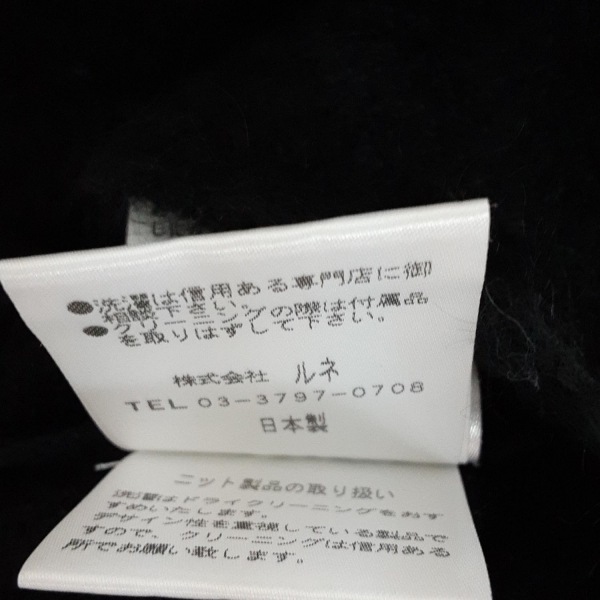 ●洗濯は信用ある専門店に御
相談下さい。
●クリーニングの際は付属品
を取りはずして下さい。
株式会社 ルネ
TEL 03-3797-0708
日本製
ニット製品の取り扱い
洗濯はドライクリーニングをおす
すめいたします。
デザイン性を重視している製品で
すので、クリーニングは信用ある
所でお願い致します。